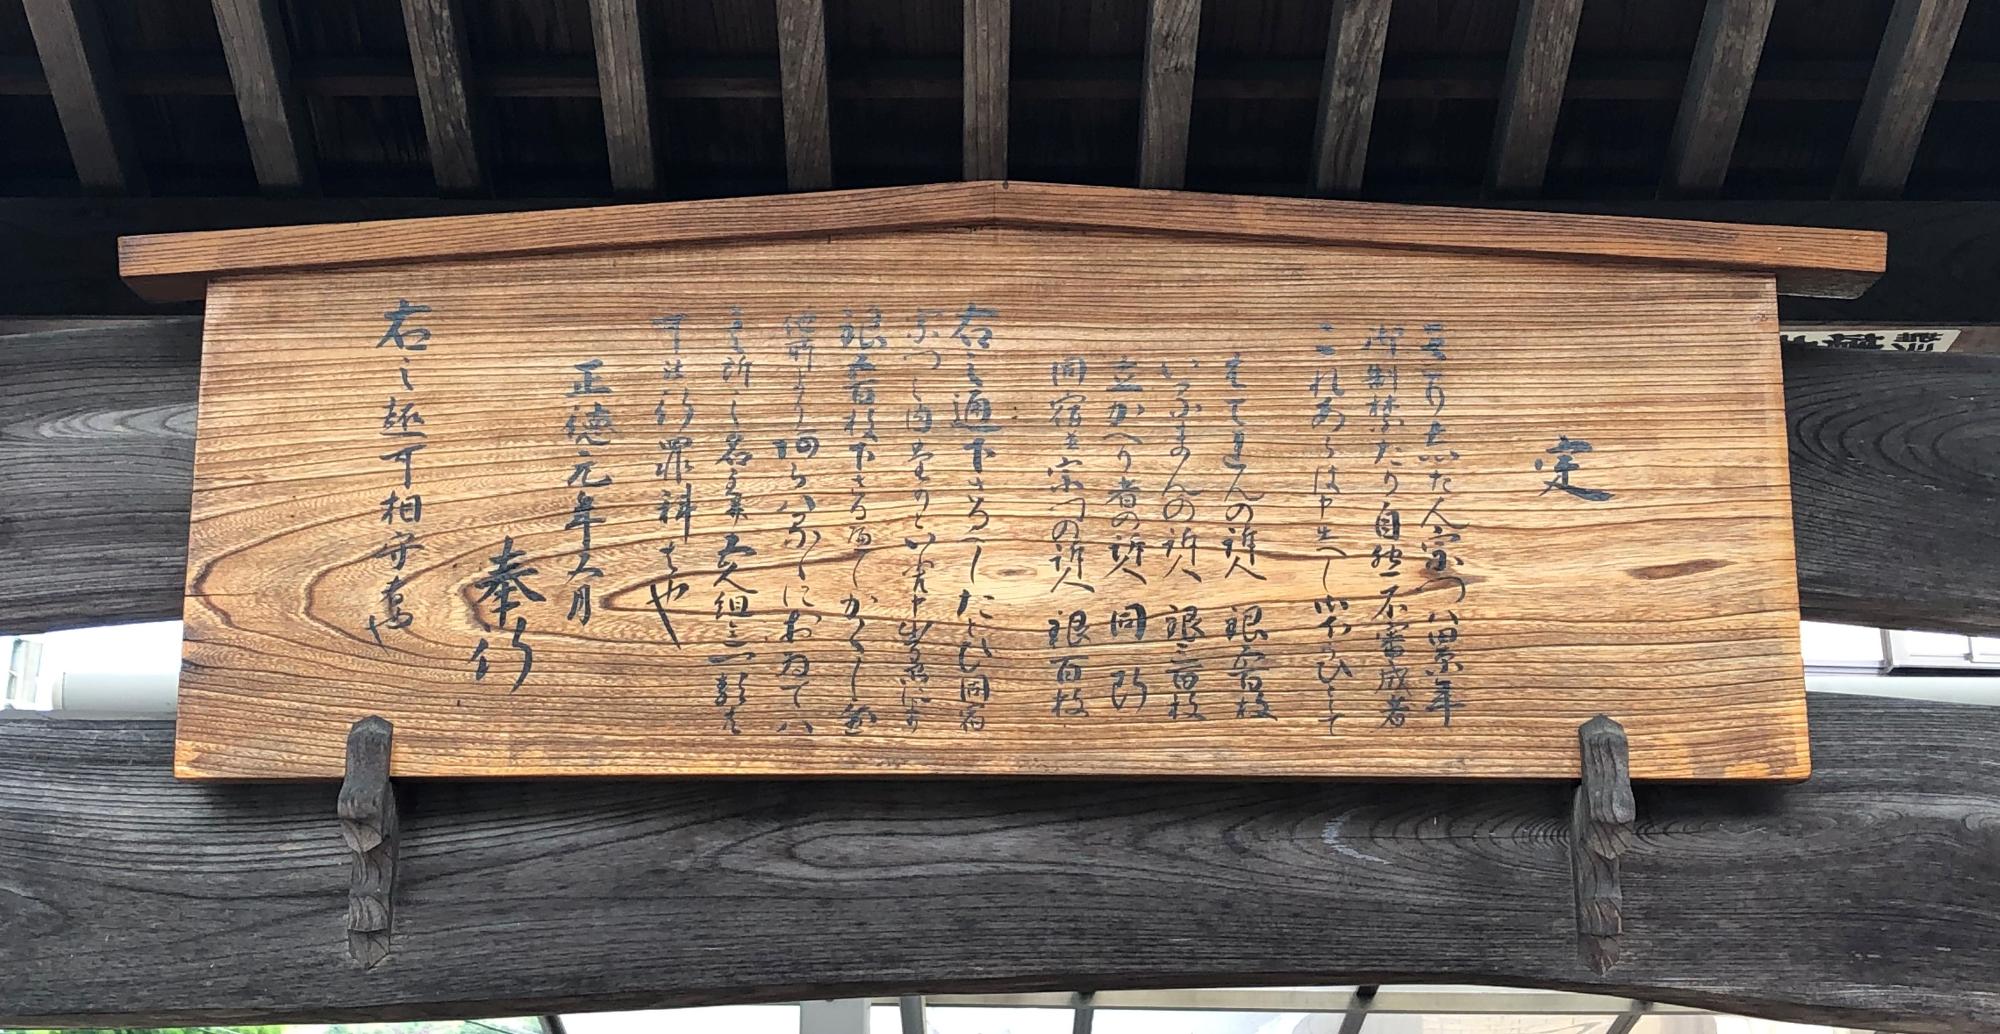 定
きりしたん宗門ハ累年
御制禁たり自然不審成者
これあらは申出へし御ほうひとして
はてれんの訴人 銀五百枚
いるまんの訴人 銀三百枚
立かへり者の訴人 同断
同宿并宗門の訴人 銀百枚
右之通下さるへしたとひ同宿
宗門之内たりといふとも申出る品により
銀五百枚下さるへしかくし置
他所よりあらハるゝにおゐてハ
其所之名主并五人組迄一類共
可被行罪科者也
正徳元年五月
奉行
右之趣可相守者也